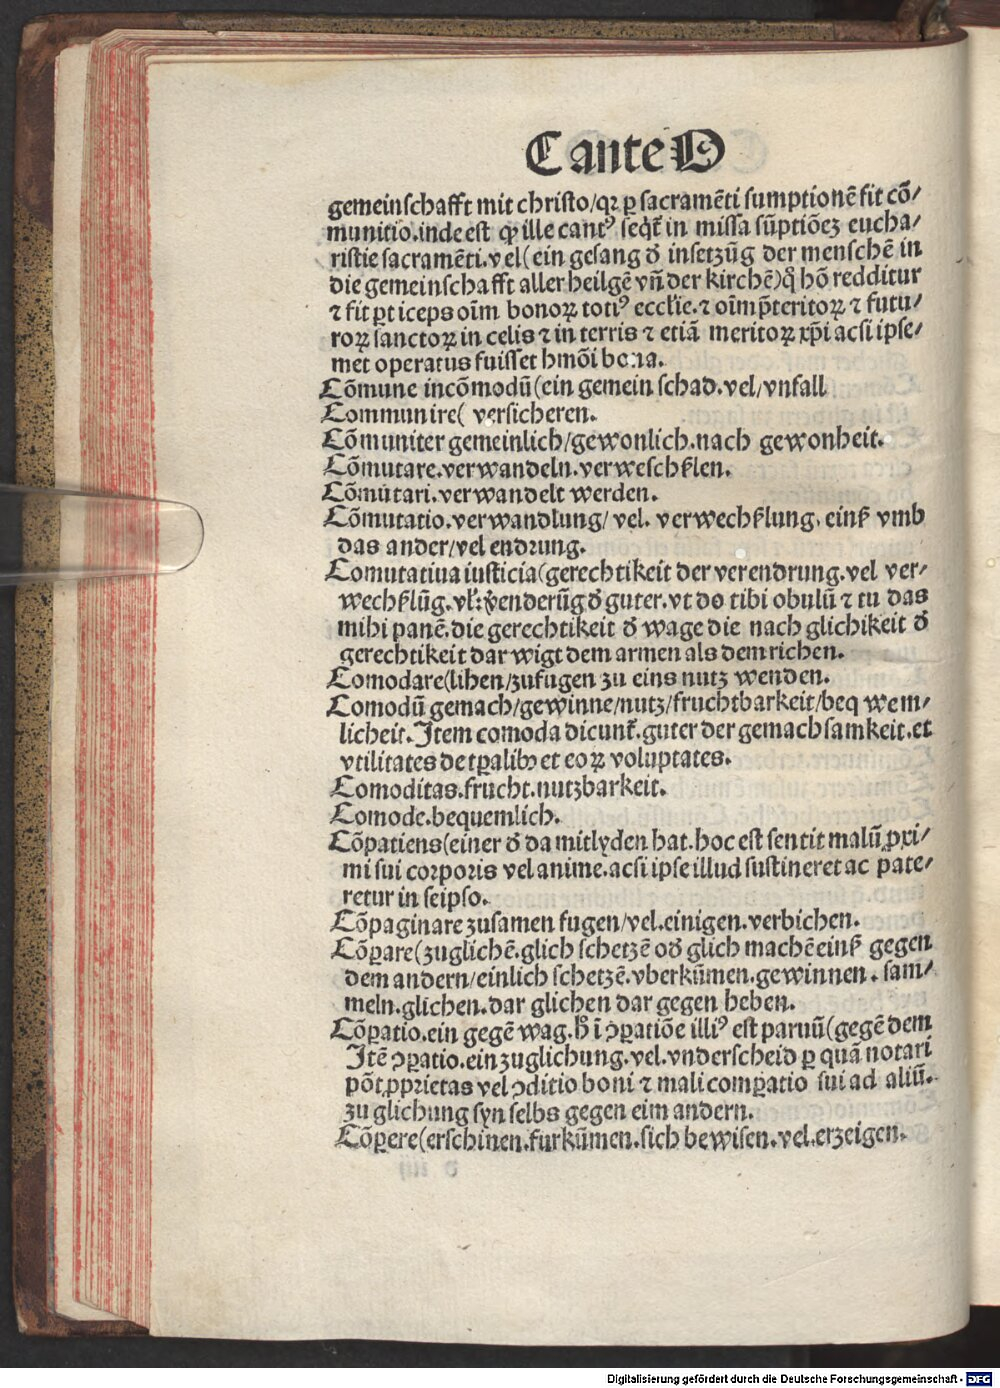 C ante O
gemeinschafft mit christo/qꝛ ꝑ sacramēti sumptionē fit cō⸗
munitio.inde est ꝙ ille cantꝰ seqͭ in missa sūptiōeꝫ eucha⸗
ristie sacramēti.vel(ein gesang ď insetzūg der menschē in
die gemeinschafft aller heilgē vn̄ der kirchē)q̊ hō redditur
⁊ fit ꝑticeps oīm bonoꝝ totiꝰ eccl̄ie.⁊ oīm p̄teritoꝝ ⁊ futu⸗
roꝝ sanctoꝝ in celis ⁊ in terris ⁊ etiā meritoꝝ xp̄i acsi ipse⸗
met operatus fuisset hmōi bona.
Cōmune incōmodū(ein gemein schad.vel/vnfall
Communire( versicheren.
Cōmuniter gemeinlich/gewonlich.nach gewonheit.
Cōmutare.verwandeln.verweschklen.
Cōmutari.verwandelt werden.
Cōmutatio.verwandlung/ vel. verwechklung. einß vmb
das ander/vel endrung.
Comutatiua iusticia(gerechtikeit der verendrung.vel ver⸗
wechklūg.vel:v̄enderūg ď guter.vt do tibi obulū ⁊ tu das
mihi panē.die gerechtikeit ď wage die nach glichikeit ď
gerechtikeit dar wigt dem armen als dem richen.
Comodare(lihen/zufugen zu eins nutz wenden.
Comodū gemach/gewinne/nutz/fruchtbarkeit/beqwem⸗
licheit.Item comoda dicunt̄.guter der gemachsamkeit.et
vtilitates de tꝑalibꝰ et eoꝝ voluptates.
Comoditas.frucht.nutzbarkeit.
Comode.bequemlich.
Cōpatiens(einer ď da mitlyden hat.hoc est sentit malū ꝓxi⸗
mi sui corporis vel anime.acsi ipse illud sustineret ac pate⸗
retur in seipso.
Cōpaginare zusamen fugen/vel.einigen.verbichen.
Cōꝑare(zuglichē.glich schetzē oď glich machē einß gegen
dem andern/einlich schetzē.vberkūmen.gewinnen. sam⸗
meln.glichen.dar glichen dar gegen heben.
Cōꝑatio.ein gegē wag.h̄ ī ꝯꝑatiōe illiꝰ est paruū(gegē dem
Itē ꝯꝑatio.ein zuglichung.vel.vnderscheid ꝑ quā notari
pōt ꝓprietas vel ꝯditio boni ⁊ mali comꝑatio sui ad aliū.
zu glichung syn selbs gegen eim andern.
Cōꝑere(erschinen.furkūmen.sich bewisen.vel.erzeigen.
Digitalisierung gefördert durch die Deutsche Forschungsgemeinschaft - DFG